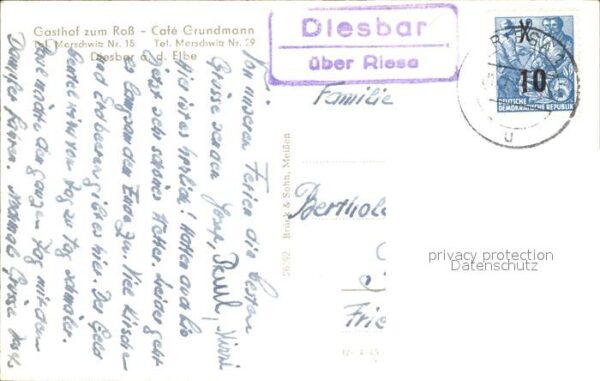 Gasthof zum Roß - Café Grundmann
Tel. Merschwitz Nr. 15 Tel. Merschwitz Nr. 29
Diesbar a. d. Elbe
Diesbar
über Riesa
RIESA
10
5
DEUTSCHE
DEMOKRATISCHE REPUBLIK
Von unseren Ferien die besten
Grüsse senden Josef, Paul,
Hier ist es herrlich! Hatten auch bis
jetzt sehr schönes Wetter. Leider geht
es langsam dem Ende zu. Viel Kirschen
und Erdbeeren gibt es hier. Der Geld
beutel wird von Tag zu Tag schmäler.
den ganzen Tag mit dem
Dampfer fahren. Nochmals Grüsse
Familie
Berthold
Frie
26/92 Brück & Sohn, Meißen
privacy protection
Datenschutz